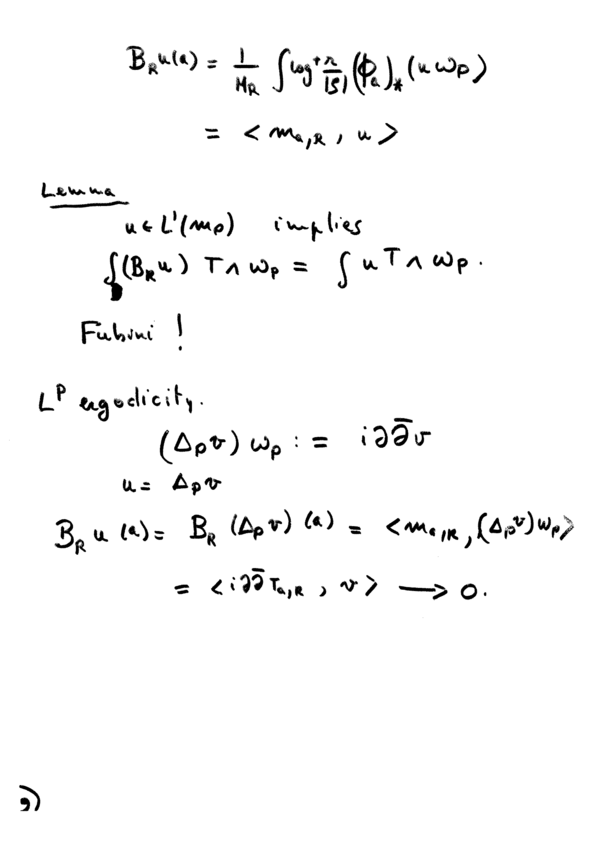 B_R u(a) = 1/M_R ∫ log⁺ r/|ζ| (ϕ_a)_* (u ω_P)
= < m_{a,R} , u >
Lemma
u ∈ L¹(m_P) implies
∫(B_R u) T ∧ ω_P = ∫ u T ∧ ω_P .
Fubini !
L^P ergodicity.
(Δ_P v) ω_P : = i∂∂̄v
u = Δ_P v
B_R u (a) = B_R (Δ_P v) (a) = < m_{a,R} , (Δ_P v) ω_P >
= < i∂∂̄ T_{a,R} , v > ⟶ 0.